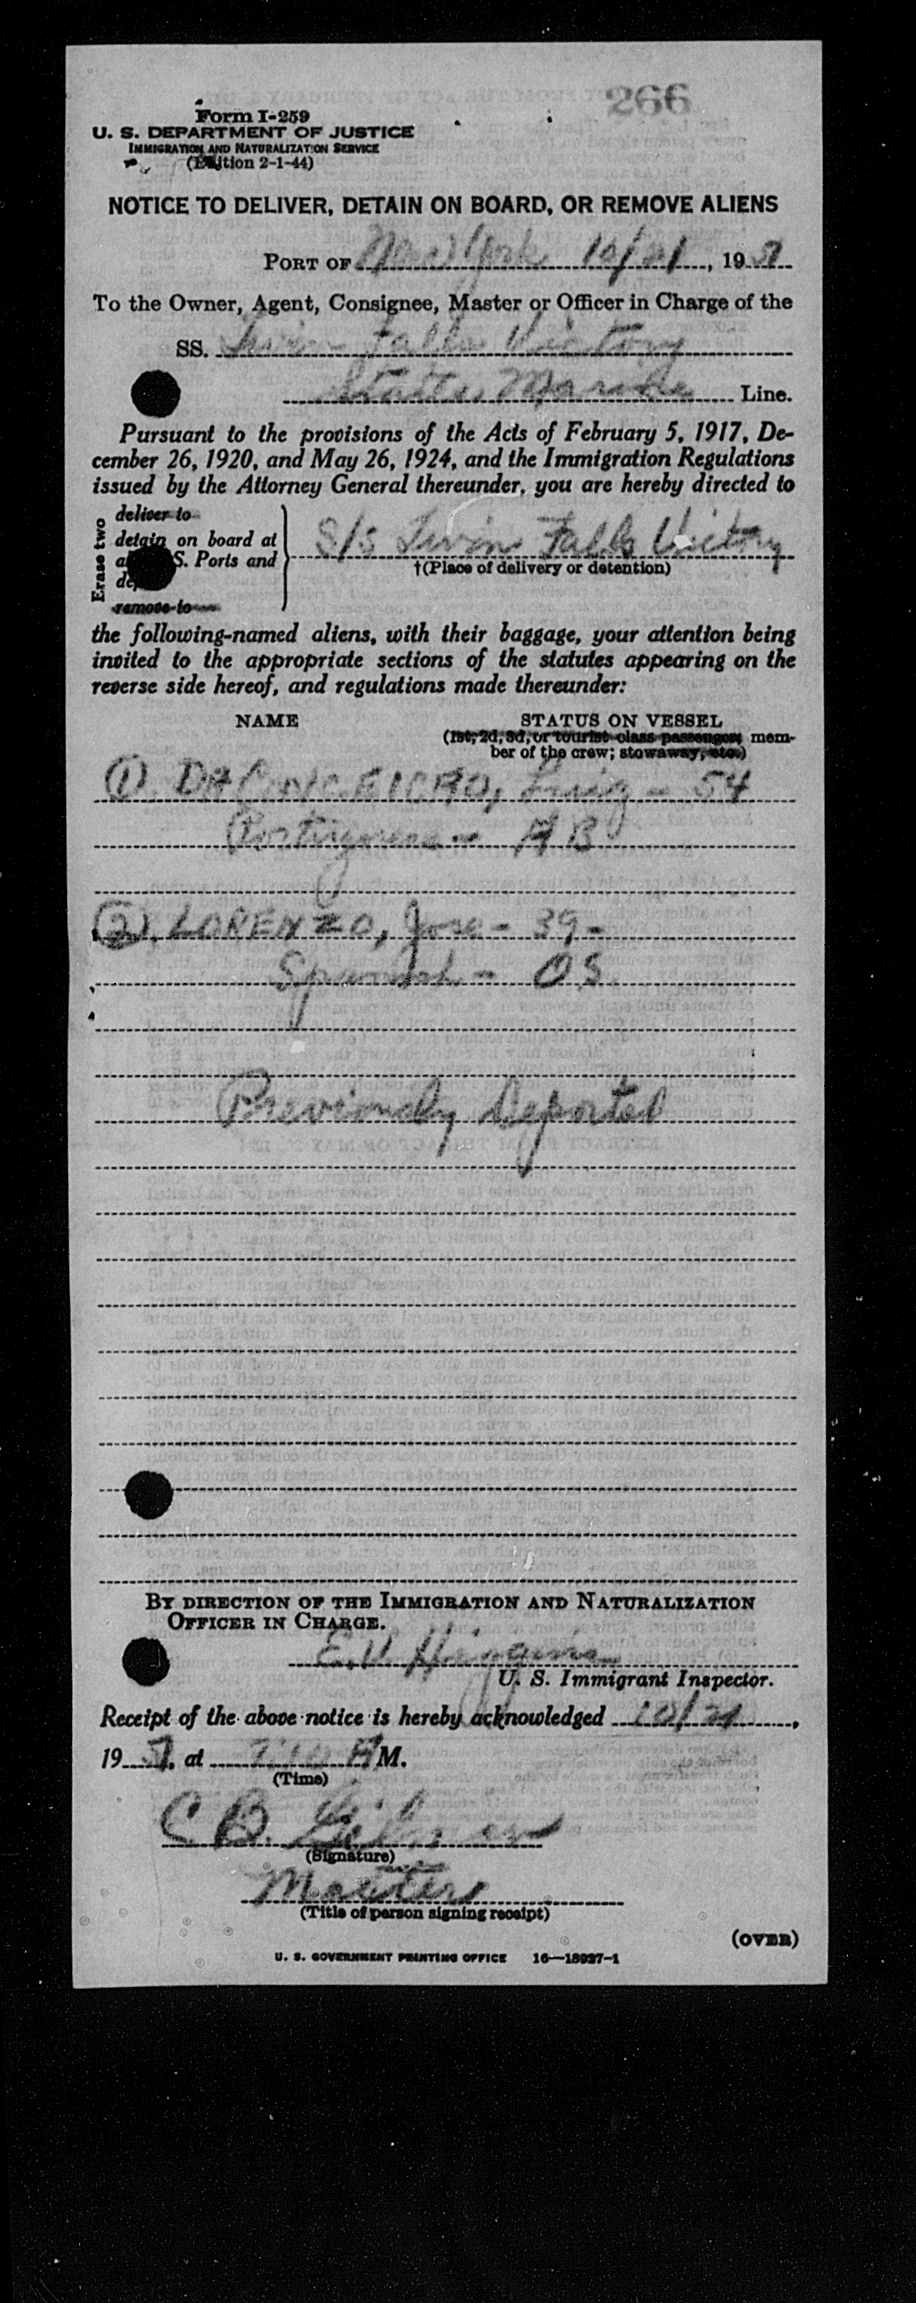 266
Form I-259
U. S. DEPARTMENT OF JUSTICE
IMMIGRATION AND NATURALIZATION SERVICE
(Edition 2-1-44)
NOTICE TO DELIVER, DETAIN ON BOARD, OR REMOVE ALIENS
PORT OF New York 10/21, 1951
To the Owner, Agent, Consignee, Master or Officer in Charge of the
SS. Twin Falls Victory
States Marine Line.
Pursuant to the provisions of the Acts of February 5, 1917, De-
cember 26, 1920, and May 26, 1924, and the Immigration Regulations
issued by the Attorney General thereunder, you are hereby directed to
Erase two
deliver to
detain on board at S/S Twin Falls Victory
S. Ports and
†(Place of delivery or detention)
remove to
the following-named aliens, with their baggage, your attention being
invited to the appropriate sections of the statutes appearing on the
reverse side hereof, and regulations made thereunder:
NAME STATUS ON VESSEL
(1st, 2d, 3d, or tourist class passenger; mem-
ber of the crew; stowaway, etc.)
(1) DA CONCEICAO, Luiz - 54
Portuguese - AB
(2), LORENZO, Jose - 39 -
Spanish - OS.
Previously Deported
BY DIRECTION OF THE IMMIGRATION AND NATURALIZATION
OFFICER IN CHARGE.
E.V. Higgins
U. S. Immigrant Inspector.
Receipt of the above notice is hereby acknowledged 10/21,
1951, at M.
(Time)
C B.
(Signature)
Master
(Title of person signing receipt)
(OVER)
U. S. GOVERNMENT PRINTING OFFICE 16—18927-1